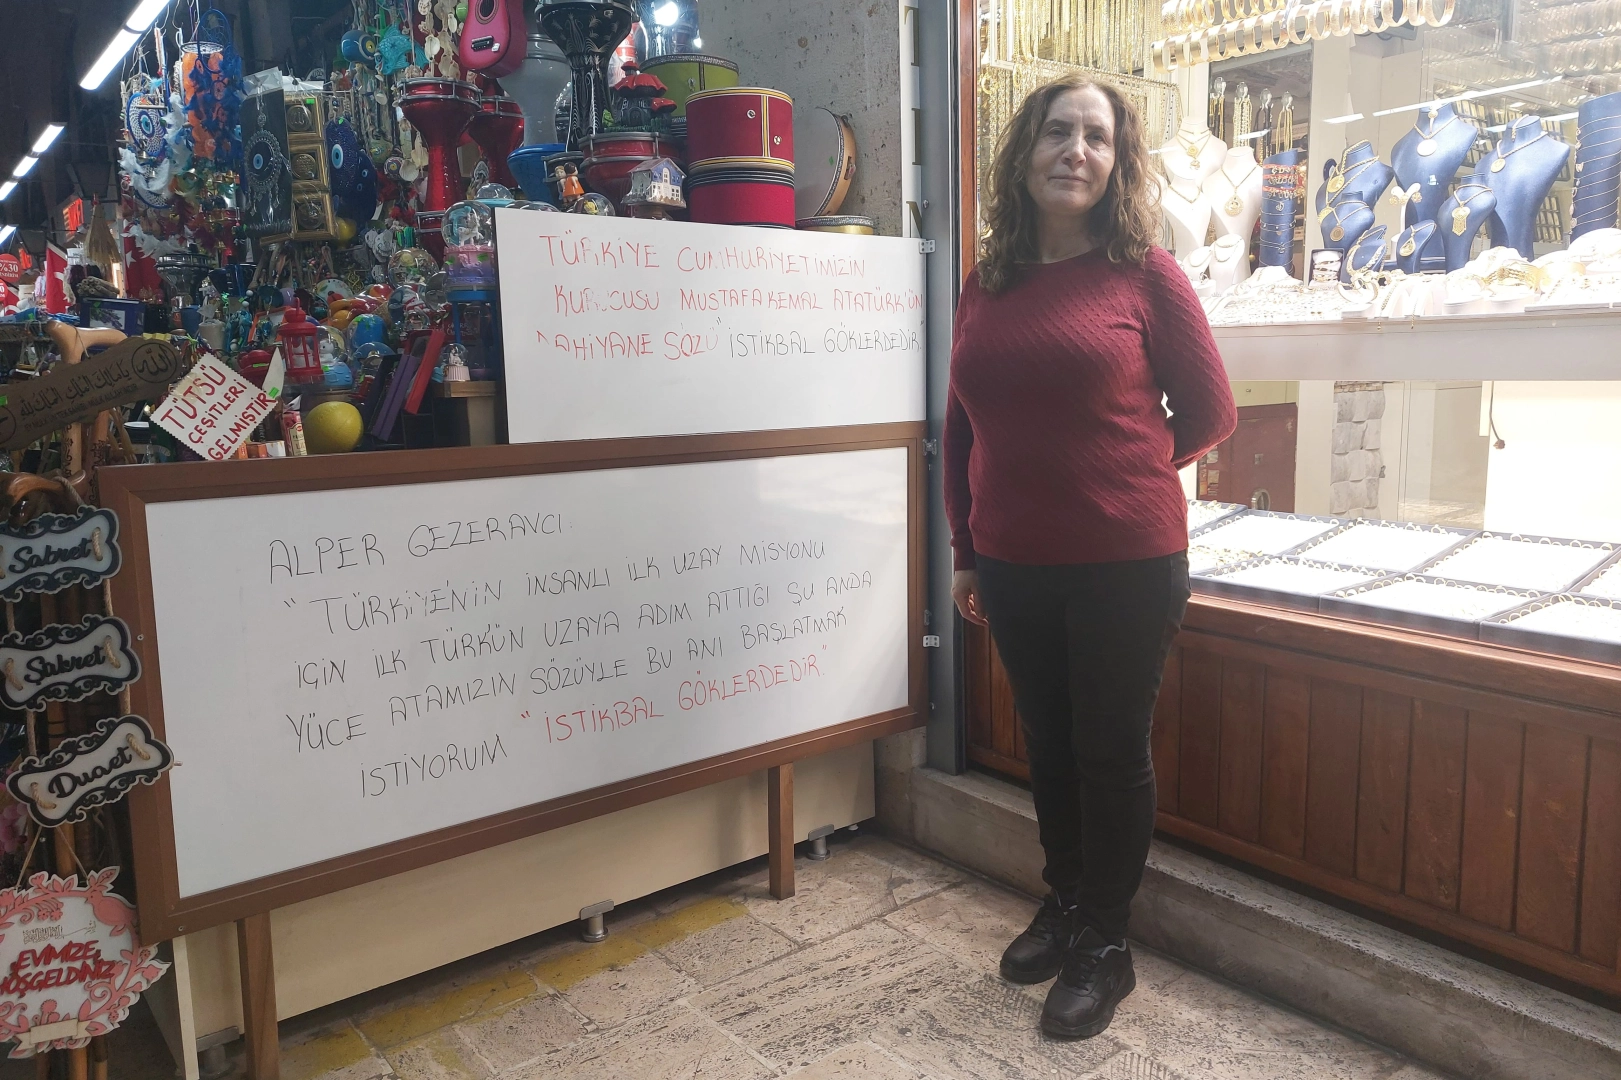 TÜRKİYE CUMHURİYETİMİZİN
KURUCUSU MUSTAFA KEMAL ATATÜRK'ÜN
SÖZÜ "İSTİKBAL GÖKLERDEDİR."
ALPER GEZERAVCI:
"TÜRKİYE'NİN İNSANLI İLK UZAY MİSYONU
İÇİN İLK TÜRK'ÜN UZAYA ADIM ATTIĞI ŞU ANDA
YÜCE ATAMIZIN SÖZÜYLE BU ANI BAŞLATMAK
İSTİYORUM "İSTİKBAL GÖKLERDEDİR."
TÜTSÜ
ÇEŞİTLERİ
GELMİŞTİR
Sabret
Şükret
Dua et
EVİMİZE
HOŞGELDİNİZ
%30